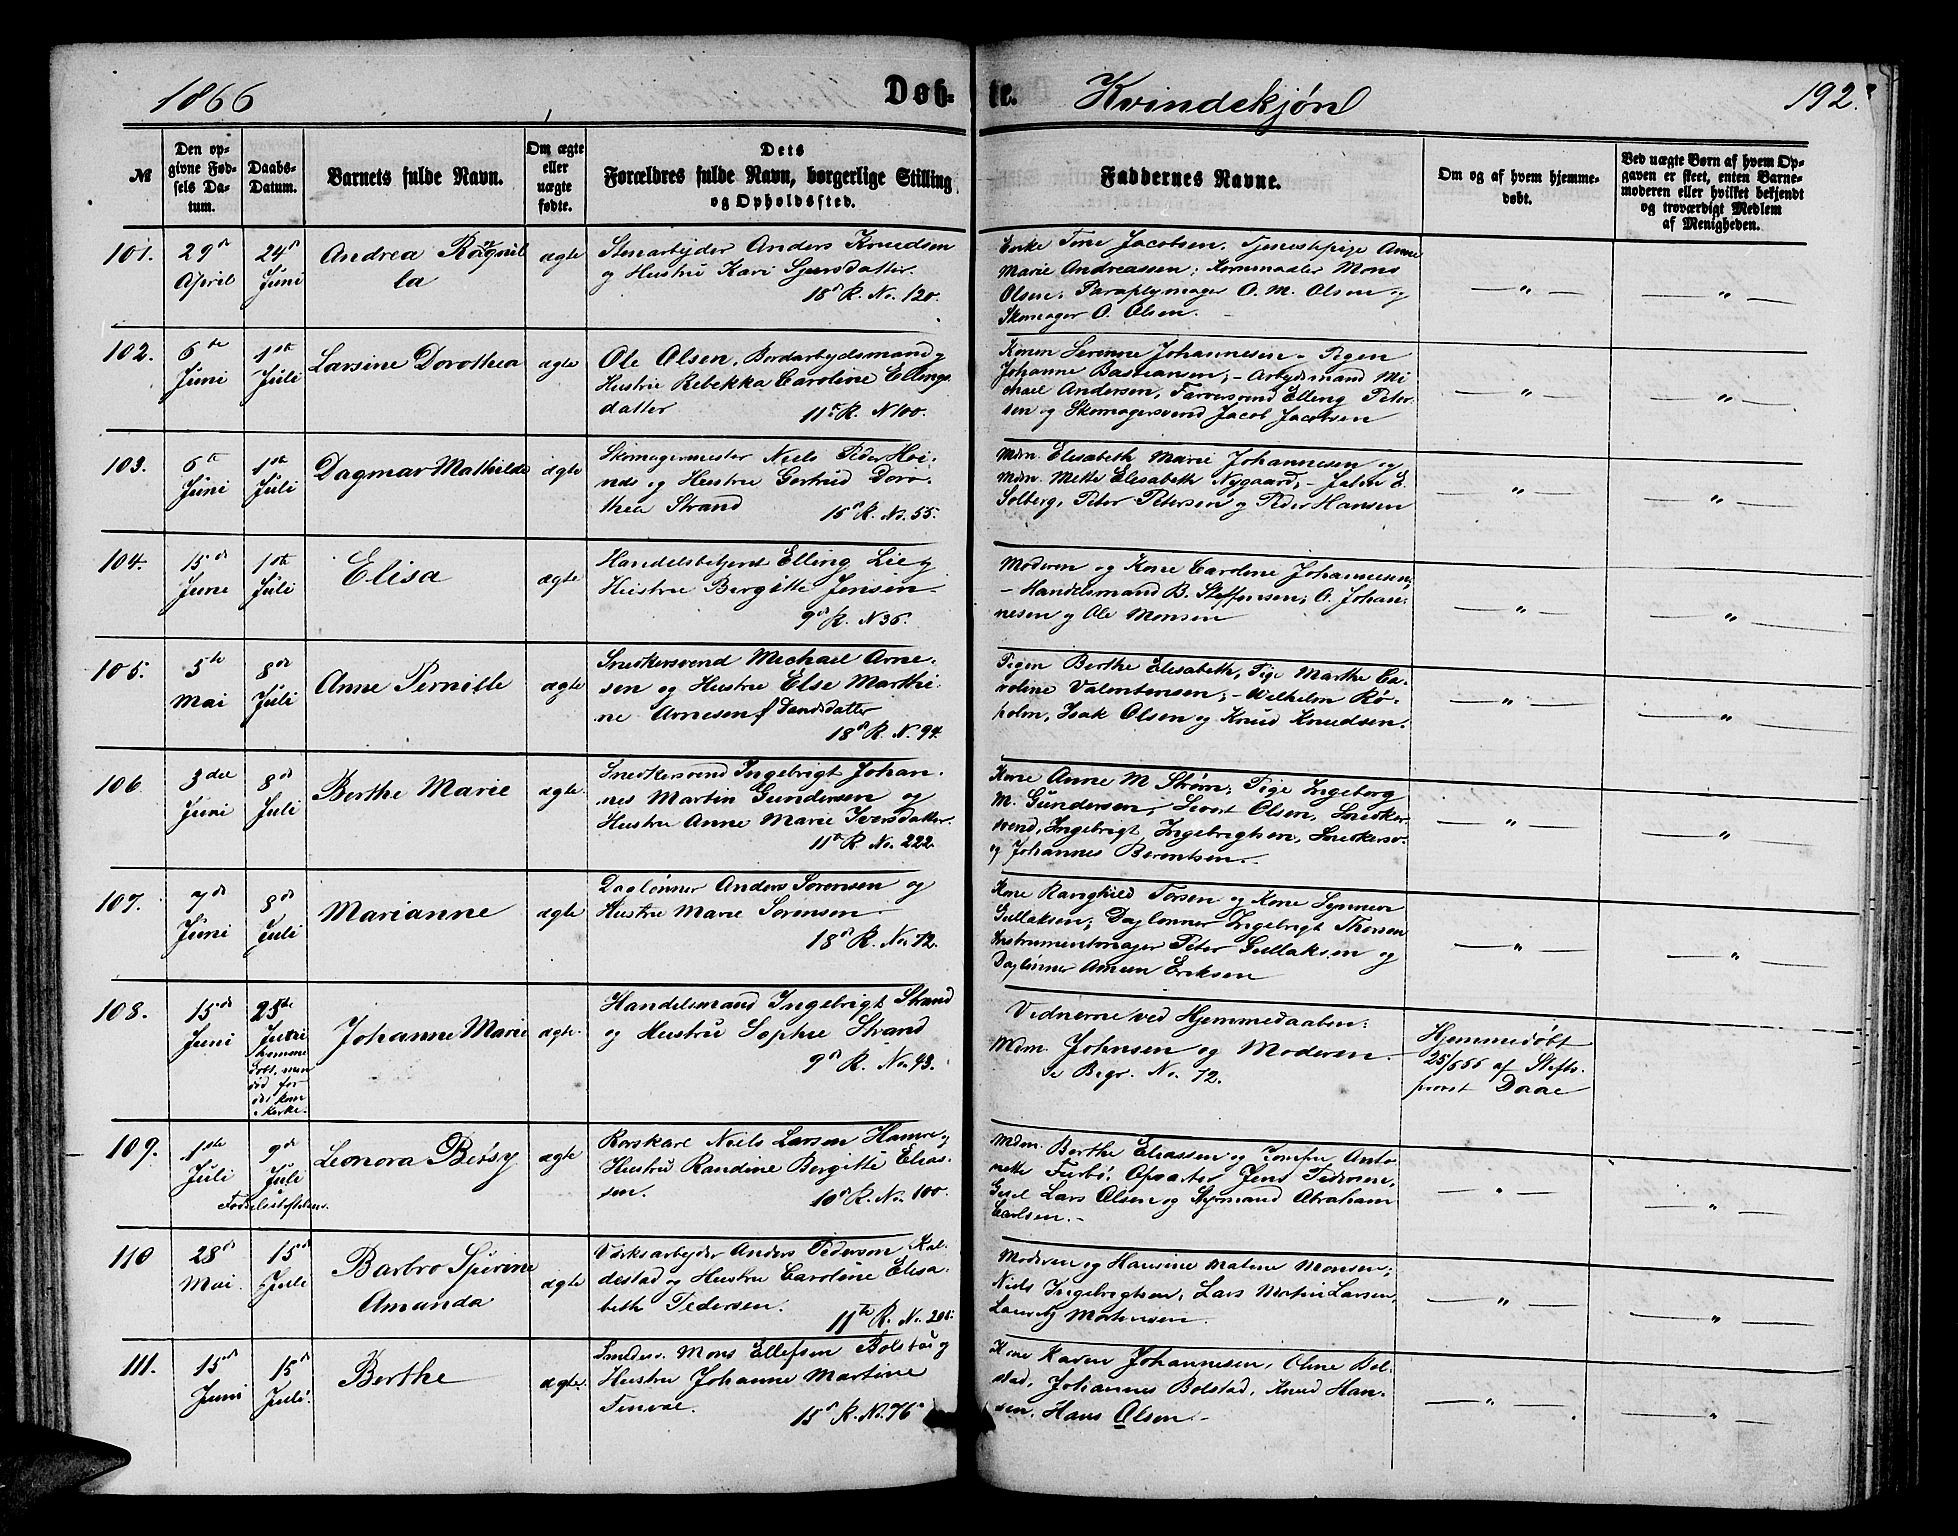 1866
Døb-
te.
Kvindekjøn
192.
№
Den op-
givne Fød-
sels Da-
tum.
Daabs-
Datum.
Barnets fulde Navn.
Om ægte
eller
uægte
fødte.
Dets
Forældres fulde Navn, borgerlige Stilling
og Opholdssted.
Faddernes Navne.
Om og af hvem hjemme-
døbt.
Ved uægte Børn af hvem Op-
gaven er skeet, enten Barne-
moderen eller hvilket bekjendt
og troværdigt Medlem
af Menigheden.
101.
29d
April
24d
Juni
Andrea Ragnil
la
ægte
Stenarbejder Anders Knudsen
og Hustru Kari Sjursdatter.
18d R. No. 120.
Enke Tone Jacobsen. Tjenestepige Anne
Marie Andreassen; Kornmaaler Mons
Olsen, Paraplymager O. M. Olsen og
Skomager O. Olsen.
— " —
— " —
102.
6te
Juni
1ste
Juli
Larsine Dorothea
ægte
Ole Olsen, Bordarbejdsmand og
Hustru Rebekka Caroline Ellings
datter
11te R. N 100.
Konen Serenne Johannesen, Pigen
Johanne Bastiansen; – Arbejdsmand Mi
chael Andersen, Farversvend Elling Peter
sen og Skomagersvend Jacob Jacobsen
— " —
— " —
103.
6te
Juni
1ste
Juli
Dagmar Mathilde
ægte
Skomagermester Niels Peder Hoi-
nes og Hustru Gertrud Doro-
thea Strand
15d R. No. 55.
Mdm. Elisabeth Marie Johannesen og
Mdm. Mette Elisabeth Nygaard; – John E.
Solberg, Peter Petersen og Peder Hansen
— " —
— " —
104.
15de
June
1ste
Juli
Elisa
ægte
Handelsbetjent Elling Lie og
Hustru Bergitte Jensen
9d R. N 36.
Moderen og Kone Caroline Johannesen,
– Handelsmand B. Steffensen; O. Johan-
nesen og Ole Monsen
— " —
— " —
105.
5te
Mai
8de
Juli
Anne Pernille
ægte
Snedkersvend Michael Arne-
sen og Hustru Else Marthi-
ne Arnesen f. Davidsdatter
18d R. N. 94.
Pigen Berthe Elisabeth, Pige Marthe Ca-
roline Valentinsen; – Wilhelm Rø-
holm, Isak Olsen og Knud Knudsen.
— " —
— " —
106
3die
Juni
8de
Juli
Berthe Marie
ægte
Snedkersvend Ingebrigt Johan-
nes Martin Gundersen og
Hustru Anne Marie Iversdatter.
11te R. No. 222.
Kone Anne M Strøm; Pige Ingeborg
M. Gundersen; Sivert Olsen, Snedker-
svend, Ingebrigt Ingebrigtsen, Snedkersv.
og Johannes Berentsen.
— " —
— " —
107.
7de
Juni
8de
Juli
Marianne
ægte
Daglønner Anders Sørensen og
Hustru Marie Sørensen
18d R. No. 12.
Kone Ranghild Torsen og Kone Synneve
Gullaksen; Daglønner Ingebrigt Thorsen
Instrumentmager Peter Gullaksen og
Daglønner Amun Eriksen
— " —
— " —
108.
15de
Juni
25te
Johanne Marie
ægte.
Handelsmand Ingebrigt Strand
og Hustru Sophie Strand
9d R. No. 93.
Vidnerne ved Hjemmedaaben:
Mdm. Johnsen og Moderen.
se Begr. No. 72.
Hjemmedøbt
25/6 66 af Stifts-
provst Daae
109.
1ste
Juli
9de
Juli
Fødselsstiftelsen.
Leonora Betsy
ægte
Rorskarl Niels Larsen Hamre og
Hustru Randine Bergitte Elias-
sen.
10d R. No. 100.
Mdm. Berthe Eliassen og Jomfru Anto
nette Furbø; Opvarter Jens Pedersen,
Gesel Lars Olsen og Styrmand Abraham
Carlsen. –
— " —
— " —
110
28de
Mai.
15de
Juli
Barbro Spirine
Amanda
ægte
Værksarbejder Anders Pedersen Kal-
destad og Hustru Caroline Elisa-
beth Pedersen.
11te R. No. 206.
Moderen og Hansine Matea Monsen;
Niels Ingebrigtsen, Lars Martin Larsen,
Lauritz Mortensen.
— " —
— " —
111.
15de
Juni
15de
Juli.
Berthe
ægte.
Smedesv. Mons Ellefsen Bolstad og
Hustru Johanne Martine
15d R. No. 76
Kone Karen Johannesen, Oline Bol-
stad, Johannes Bolstad, Knud Han-
sen, Hans Olsen –
— " —
— " —